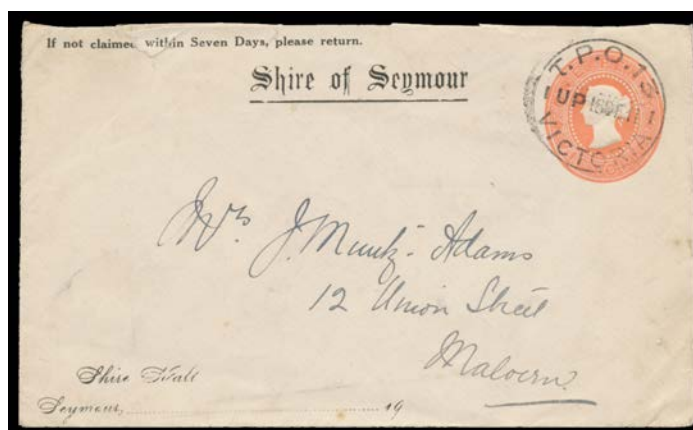 If not claimed within Seven Days, please return.
Shire of Seymour
T.P.O.13
UP
VICTORIA
Mrs J. Muntz-Adams
12 Union Street
Malvern
Shire Hall
Seymour, 19